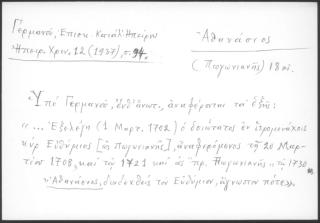 Γερμανοῦ, Ἐπισκ. Καταλ. Ἠπείρου
Ἠπειρ. Χρον. 12 (1937), σ. 94.
Ἀθανάσιος
(Πωγωνιανῆς) 18 αἰ.
Ὑπό Γερμανοῦ, ἐνθ' ἀνωτ., ἀναφέρονται τά ἑξῆς:
«... Ἐξελέγη (1 Μαρτ. 1702) ὁ ὁσιώτατος ἐν ἱερομονάχοις
κύρ Εὐθύμιος [ὡς Πωγωνιανῆς], ἀναφερόμενος τῇ 20 Μαρ-
τίου 1708, καί τῷ 1721 καί ὡς πρ. Πωγωνιανῆς τῷ 1730
ὁ Ἀθανάσιος, διαδεχθείς τόν Εὐθύμιον, ἄγνωστον πότε».